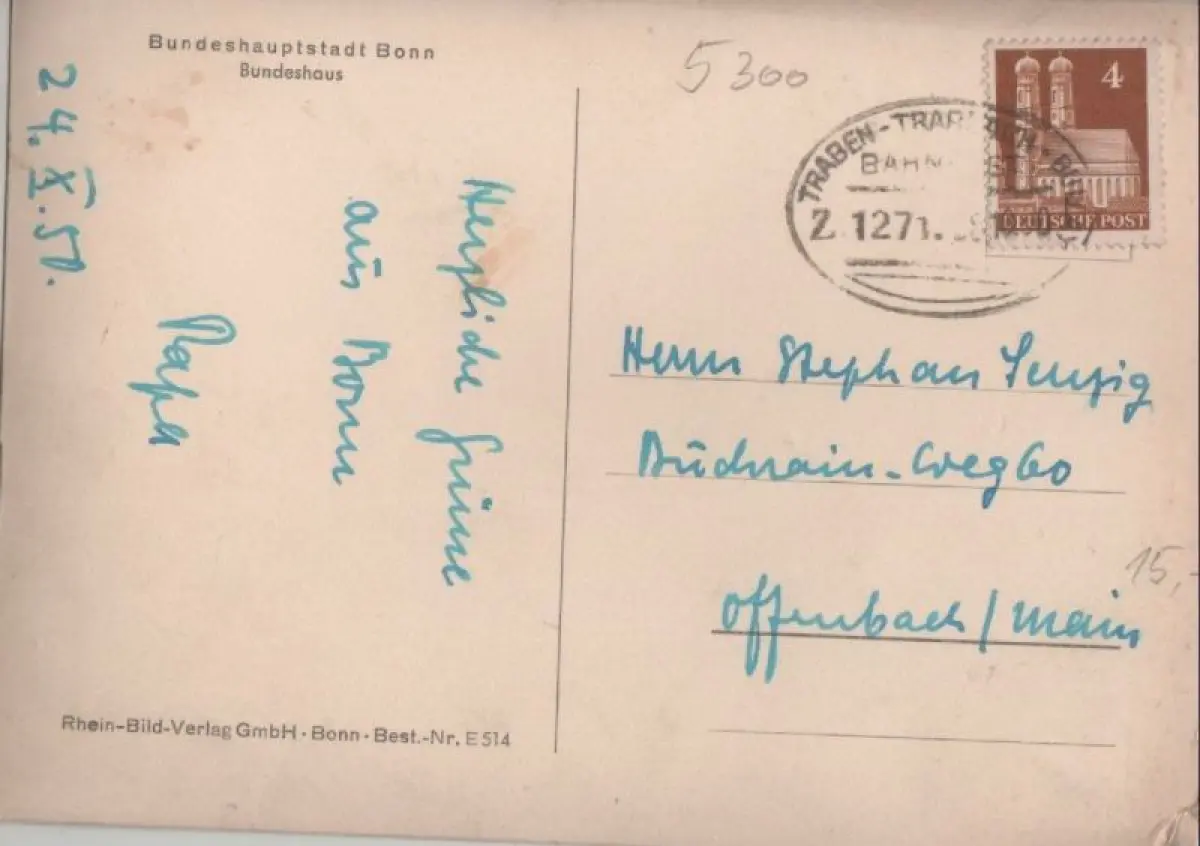 Bundeshauptstadt Bonn
Bundeshaus
24. X. 50.
Herzliche Grüsse
aus Bonn
Papa
Rhein-Bild-Verlag GmbH · Bonn · Best.-Nr. E 514
5300
4
DEUTSCHE POST
TRABEN-TRAR
BAHN
Z. 1271.
Herrn Stephan
60
Offenbach / Main
15,-